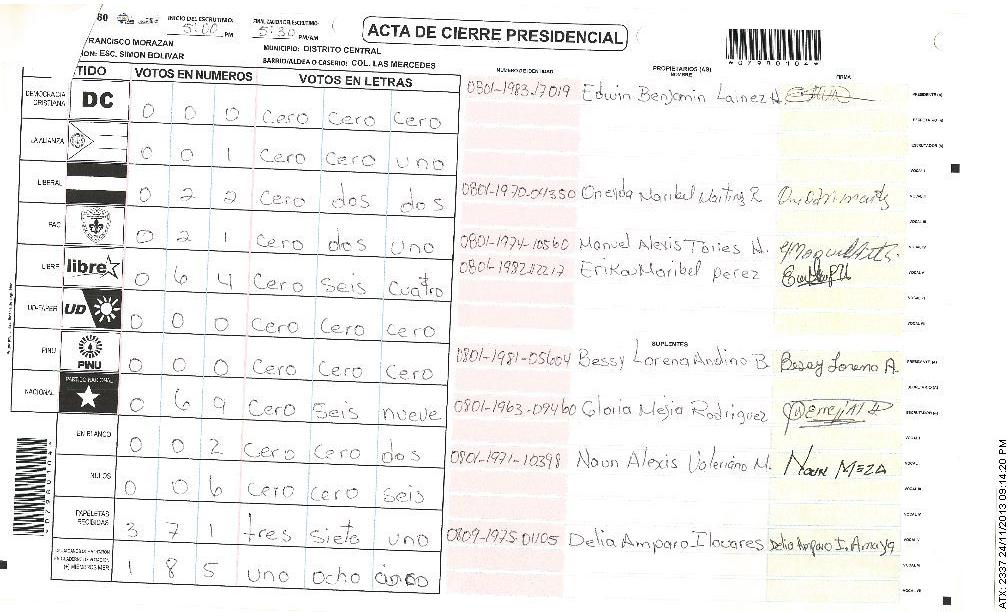 80 INICIO DEL ESCRUTINIO: 5:00 PM FINALIZACION DEL ESCRUTINIO: 5:30 PM/AM
ACTA DE CIERRE PRESIDENCIAL
FRANCISCO MORAZAN MUNICIPIO: DISTRITO CENTRAL
ION: ESC. SIMON BOLIVAR BARRIO/ALDEA O CASERIO: COL. LAS MERCEDES
*07980104*
TIDO VOTOS EN NUMEROS VOTOS EN LETRAS
NUMERO DE IDENTIDAD PROPIETARIOS (AS) NOMBRE FIRMA
DEMOCRACIA CRISTIANA DC 0 0 0 Cero Cero Cero
0801-1983-17019 Edwin Benjamin Lainez H. PRESIDENTE (A)
SECRETARIO (A)
LA ALIANZA 0 0 1 Cero Cero uno
ESCRUTADOR (A)
VOCAL I
LIBERAL 0 2 2 Cero dos dos
0801-1970-04350 Oneyda Maribel R VOCAL II
VOCAL III
PAC 0 2 1 Cero dos uno
0801-1974-10560 Manuel Alexis Torres N. VOCAL IV
LIBRE libre 0 6 4 Cero Seis Cuatro
0801-1982-12217 Erika Maribel perez VOCAL V
VOCAL VI
UD-FAPER UD 0 0 0 Cero Cero Cero
VOCAL VII
SUPLENTES
PINU PINU 0 0 0 Cero Cero Cero
0801-1981-05604 Bessy Lorena Andino B. Bessy Lorena A. PRESIDENTE (A)
SECRETARIO (A)
NACIONAL PARTIDO NACIONAL 0 6 9 Cero Seis nueve
0801-1963-09460 Gloria Mejia Rodriguez ESCRUTADOR (A)
VOCAL I
EN BLANCO 0 0 2 Cero Cero dos
0801-1971-10398 Noun Alexis Valeriano M. Noun MEZA VOCAL II
VOCAL III
NULOS 0 0 6 Cero Cero Seis
VOCAL IV
PAPELETAS RECIBIDAS 3 7 1 tres Siete uno
0809-1975-01105 Delia Amparo Delia Amparo I. Amaya VOCAL V
VOCAL VI
1 8 5 uno ocho cinco
VOCAL VII
*07980104*
ATX: 2337 24/11/2013 09:14:20 PM